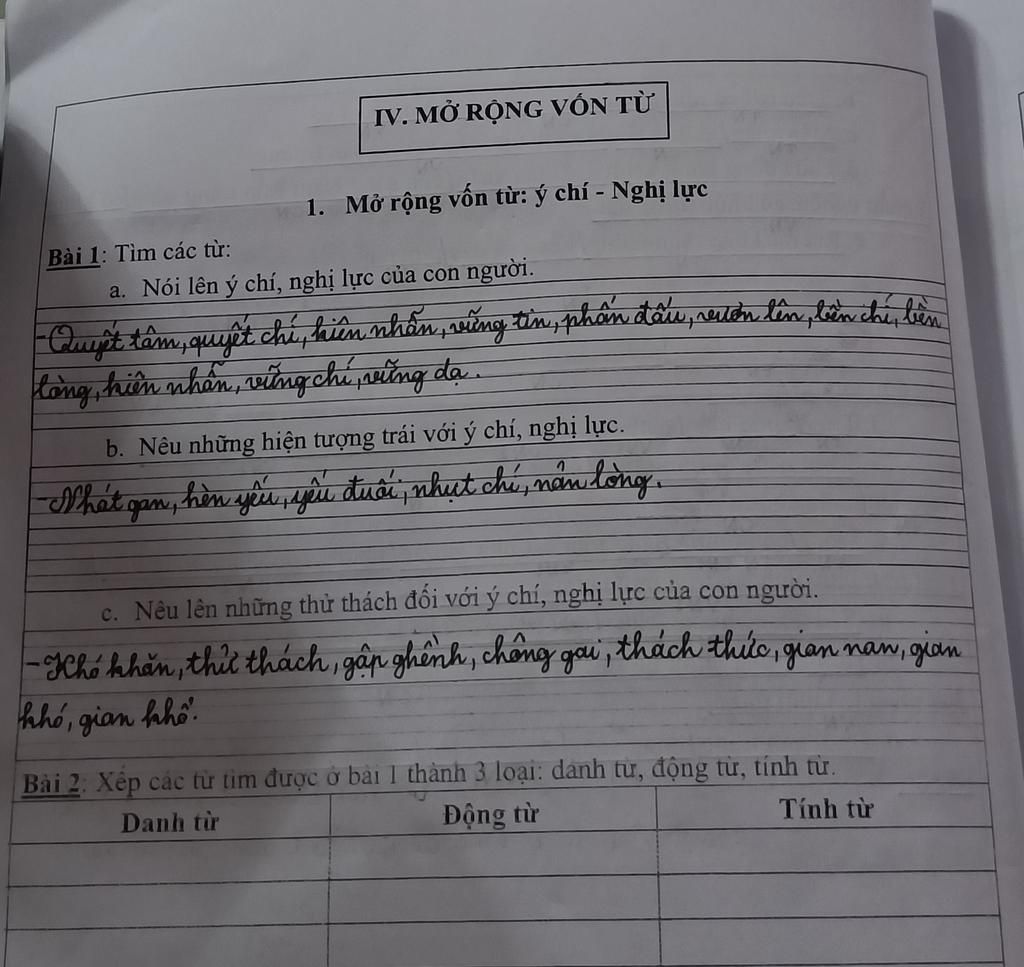 IV. MỞ RỘNG VỐN TỪ
1. Mở rộng vốn từ: ý chí - Nghị lực
Bài 1: Tìm các từ:
a. Nói lên ý chí, nghị lực của con người.
-Quyết tâm, quyết chí, kiên nhẫn, vững tin, phấn đấu, vươn lên, bền chí, bền
lòng, kiên nhẫn, vững chí, vững dạ.
b. Nêu những hiện tượng trái với ý chí, nghị lực.
-Nhát gan, hèn yếu, yếu đuối, nhụt chí, nản lòng.
c. Nêu lên những thử thách đối với ý chí, nghị lực của con người.
-Khó khăn, thử thách, gập ghềnh, chông gai, thách thức, gian nan, gian
khó, gian khổ.
Bài 2: Xếp các từ tìm được ở bài 1 thành 3 loại: danh từ, động từ, tính từ.
Danh từ Động từ Tính từ